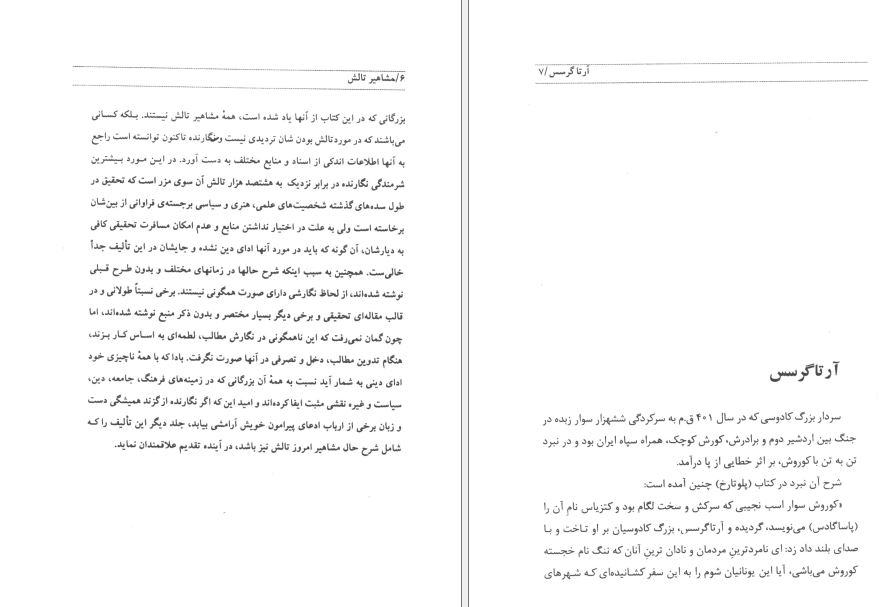 ۶/مشاهیر تالش
بزرگانی که در این کتاب از آنها یاد شده است، همهٔ مشاهیر تالش نیستند. بـلکه کسـانی
می‌باشند که در مورد تالش بودن شان تردیدی نیست و نگارنده تاکنون توانسته است راجع
به آنها اطلاعات اندکی از اسناد و منابع مختلف به دست آورد. در ایـن مـورد بـیشترین
شرمندگی نگارنده در برابر نزدیک به هشتصد هزار تالش آن سوی مزر است که تحقیق در
طول سده‌های گذشته شخصیت‌های علمی، هنری و سیاسی برجسته‌ی فراوانی از بین‌شان
برخاسته است ولی به علت در اختیار نداشتن منابع و عدم امکان مسافرت تحقیقی کافی
به دیارشان، آن گونه که باید در مورد آنها ادای دین نشده و جایشان در این تألیف جداً
خالی‌ست. همچنین به سبب اینکه شرح حالها در زمانهای مختلف و بدون طـرح قـبلی
نوشته شده‌اند، از لحاظ نگارشی دارای صورت همگونی نیستند. برخی نسبتاً طولانی و در
قالب مقاله‌ای تحقیقی و برخی دیگر بسیار مختصر و بدون ذکر منبع نوشته شده‌اند، اما
چون گمان نمی‌رفت که این ناهمگونی در نگارش مطالب، لطمه‌ای به اسـاس کـار بـزند،
هنگام تدوین مطالب، دخل و تصرفی در آنها صورت نگرفت. بادا که با همهٔ ناچیزی خود
ادای دینی به شمار آید نسبت به همهٔ آن بزرگانی که در زمینه‌های فرهنگ، جامعه، دین،
سیاست و غیره نقشی مثبت ایفا کرده‌اند و امید این که اگر نگارنده از گزند همیشگی دست
و زبان برخی از ارباب ادعای پیرامون خویش آرامشی بیابد، جلد دیگر این تألیف را کـه
شامل شرح حال مشاهیر امروز تالش نیز باشد، در آینده تقدیم علاقمندان نماید.
آرتاگرسس/۷
آرتاگرسس
سردار بزرگ کادوسی که در سال ۴۰۱ ق.م به سرکردگی ششهزار سوار زبده در
جنگ بین اردشیر دوم و برادرش، کورش کوچک، همراه سپاه ایران بود و در نبرد
تن به تن با کوروش، بر اثر خطایی از پا درآمد.
شرح آن نبرد در کتاب (پلوتارخ) چنین آمده است:
«کوروش سوار اسب نجیبی که سرکش و سخت لگام بود و کتزیاس نام آن را
(پاساگادس) می‌نویسد، گردیده و آرتاگرسس، بزرگ کادوسیان بر او تـاخت و بـا
صدای بلند داد زد: ای نامردترین مردمان و نادان ترین آنان که ننگ نام خجسته
کوروش می‌باشی، آیا این یونانیان شوم را به این سفر کشانیده‌ای کـه شـهرهای